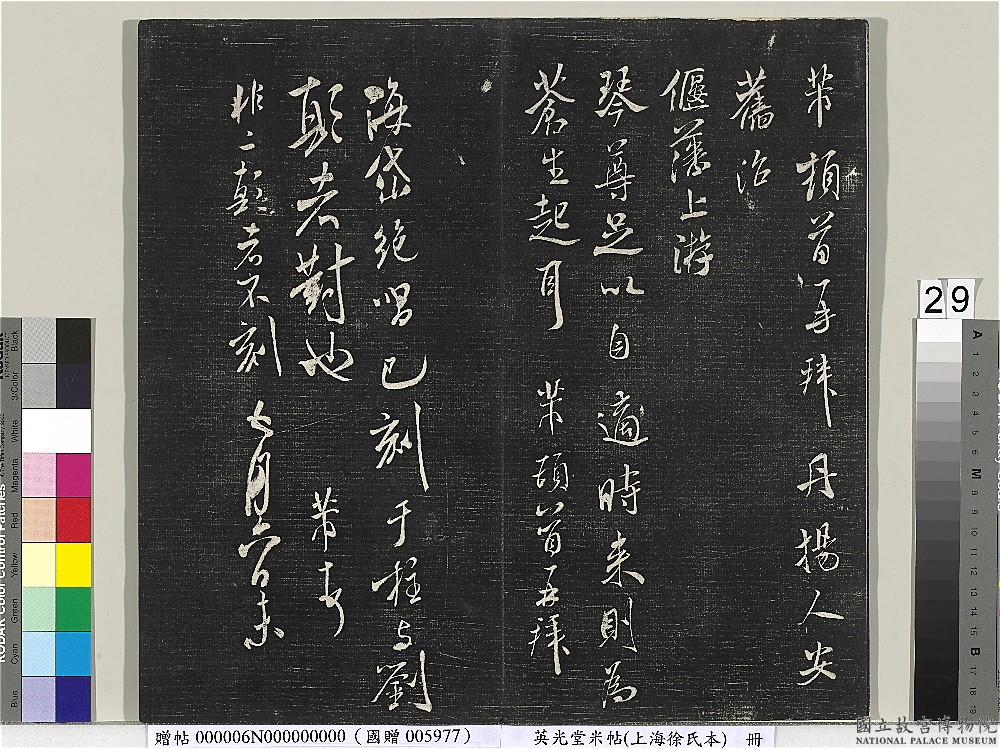 芾頓首再拜丹揚人安
舊治
偃藩上游
琴尊足以自適時来則為
蒼生起耳 芾頓首再拜
海岱絶唱已刻于柱与劉
顛老對也 芾
非二顛老不刻 七月六日
29
贈帖 000006N000000000 (國贈 005977)
英光堂米帖(上海徐氏本) 冊
國立故宮博物院
NATIONAL PALACE MUSEUM
KODAK Color Control Patches
Blue Cyan Green Yellow Red Magenta White 3/Color Black
A 1 2 3 4 5 6 M 8 9 10 11 12 13 14 15 B 17 18 19